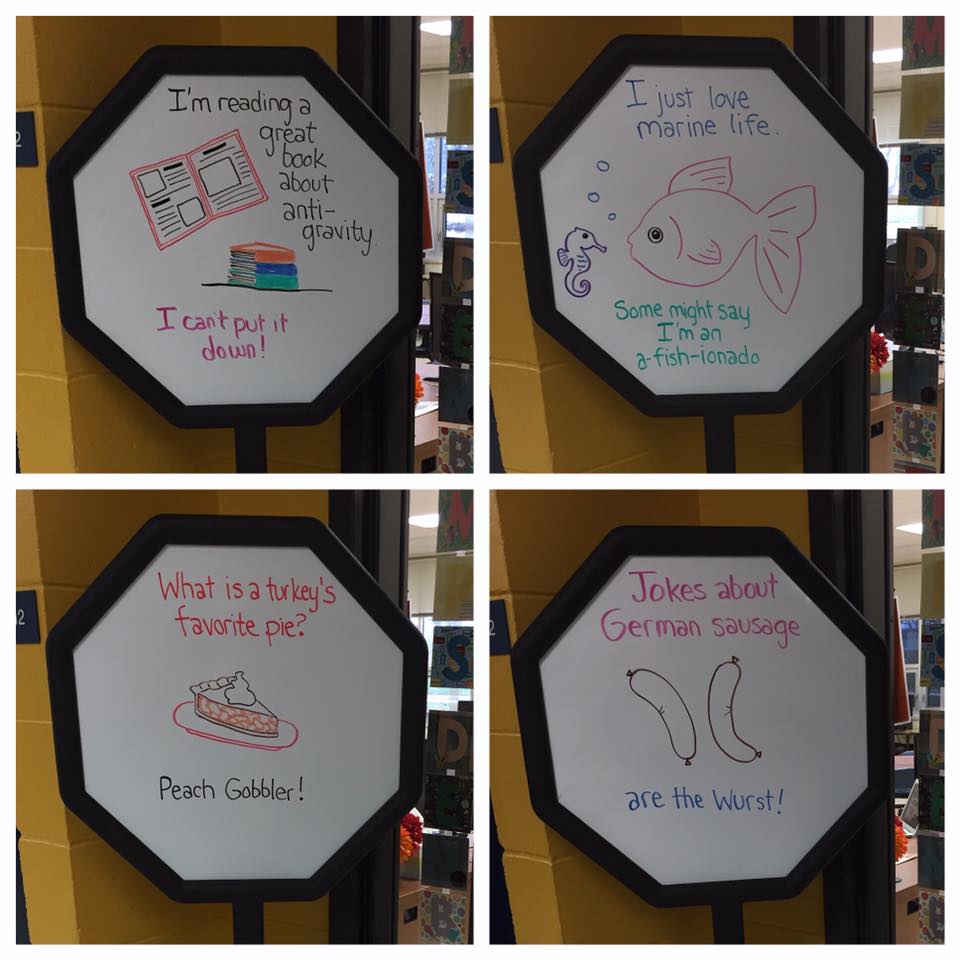 I'm reading a
great
book
about
anti-
gravity.
I can't put it
down!
I just love
marine life.
Some might say
I'm an
a-fish-ionado
What is a turkey's
favorite pie?
Peach Gobbler!
Jokes about
German sausage
are the Wurst!